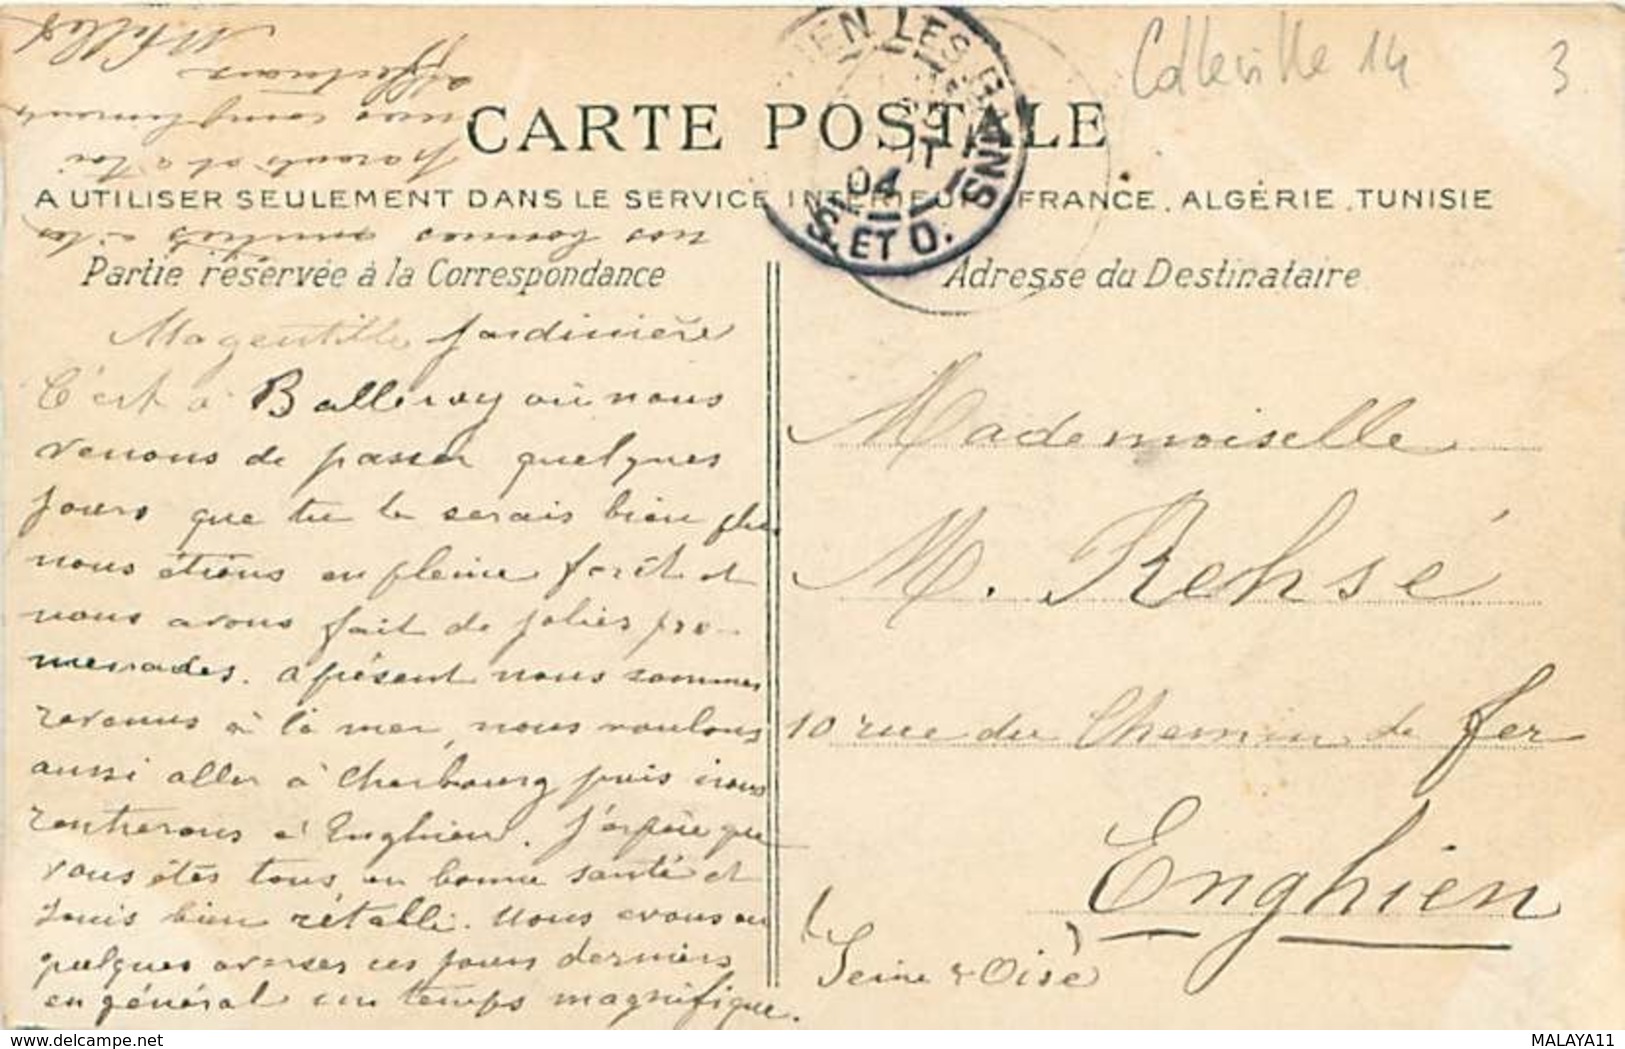 Colleville 14
3
CARTE POSTALE
A UTILISER SEULEMENT DANS LE SERVICE INTERIEUR FRANCE, ALGÉRIE, TUNISIE
LES BAINS
04
S. ET O.
Partie réservée à la Correspondance
Ma gentille jardinière
C'est à Balleroy où nous
venons de passer quelques
jours que tu te serais bien plu
nous étions en pleine forêt et
nous avons fait de jolies pro-
menades. a présent nous sommes
revenus à la mer, nous voulons
aussi aller à Cherbourg puis nous
rentrerons à Enghien. J'espère que
vous êtes tous en bonne santé et
Louis bien rétabli. Nous avons eu
quelques averses ces jours derniers
en général un temps magnifique.
nos bonnes amitiés à tes
parents et à toi
nos compliments
affectueux
Adresse du Destinataire
Mademoiselle
M. Rehsé
10 rue du Chemin de fer
Enghien
(Seine & Oise)
MALAYA11